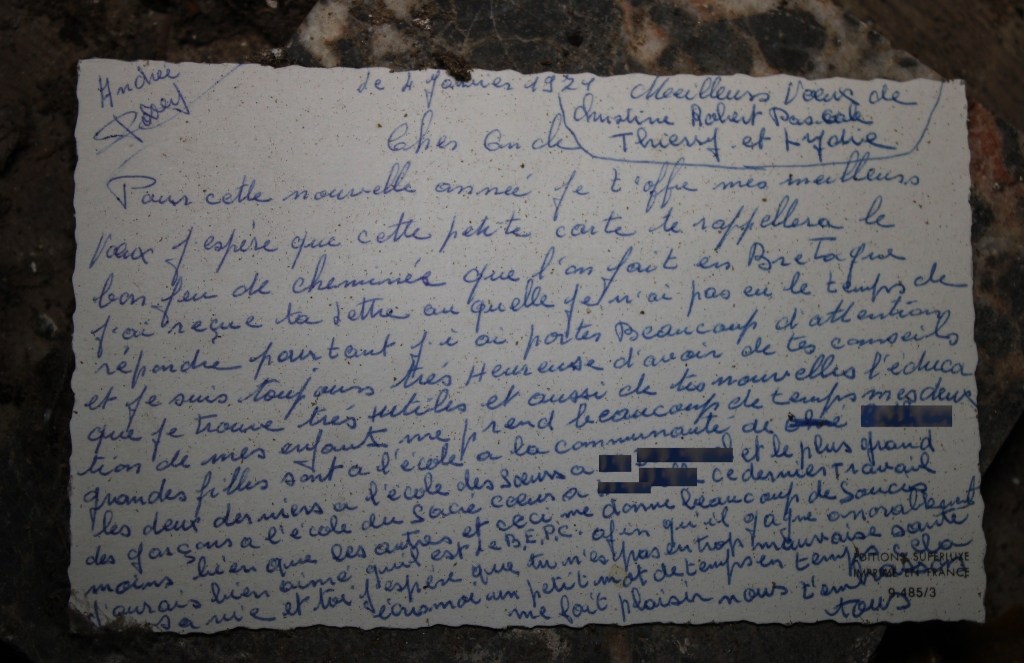 Andrée
le 4 Janvier 1974
Meilleurs Vœux de
Christine Robert Pascale
Thierry et Lydie
Cher Oncle
Pour cette nouvelle année je t'offre mes meilleurs
Vœux j'espère que cette petite carte te rappellera le
bon feu de cheminée que l'on fait en Bretagne
j'ai reçue ta lettre au quelle je n'ai pas eu le temps de
répondre pourtant j'i ai portes Beaucoup d'attention
et je suis toujours très Heureuse d'avoir de tes conseils
que je trouve très utiles et aussi de tes nouvelles l'éduca
tion de mes enfants me prend beaucoup de temps mes deux
grandes filles sont a l'école a la communauté de
les deux derniers a l'école des Sœurs a et le plus grand
des garçons a l'école du Sacré cœur a ce dernier Travail
moins bien que les autres et ceci me donne beaucoup de Soucis
j'aurais bien aimé qu'il est le B.E.P.C. afin qu'il gagne
sa vie et toi j'espère que tu n'es pas en trop mauvaise santé
écris moi un petit mot de temps en temps cela
me fait plaisir nous t'embrassons
tous
EDITIONS SUPERLUXE
IMPRIMÉ EN FRANCE
9.485/3